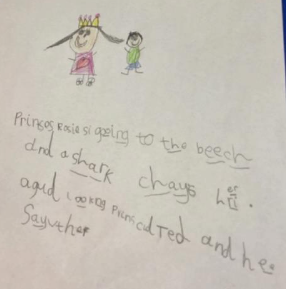 Prinses Rosie is going to the beech
and a shark chays her.
a gud looking prins cald Ted and he
Sayvther